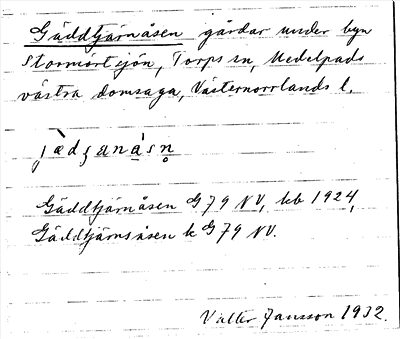 Gäddtjärnåsen gårdar under byn
Stormörtsjön, Torps sn, Medelpads
västra domsaga, Västernorrlands l.
Gäddtjärnåsen G 79 NV, kb 1924,
Gäddtjärnsåsen k G 79 NV.
Valter Jansson 1932.